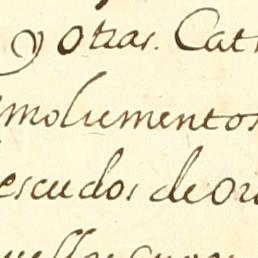 y otras. Cat
molumentos
escudos de or